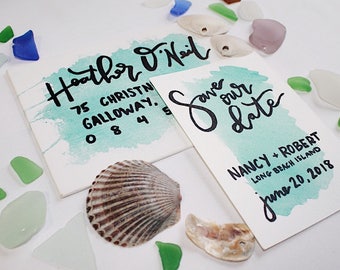 Heather O'Neil
75 CHRISTN
GALLOWAY,
0 8 4 5
Save our
date
NANCY + ROBERT
LONG BEACH ISLAND
june 20, 2018